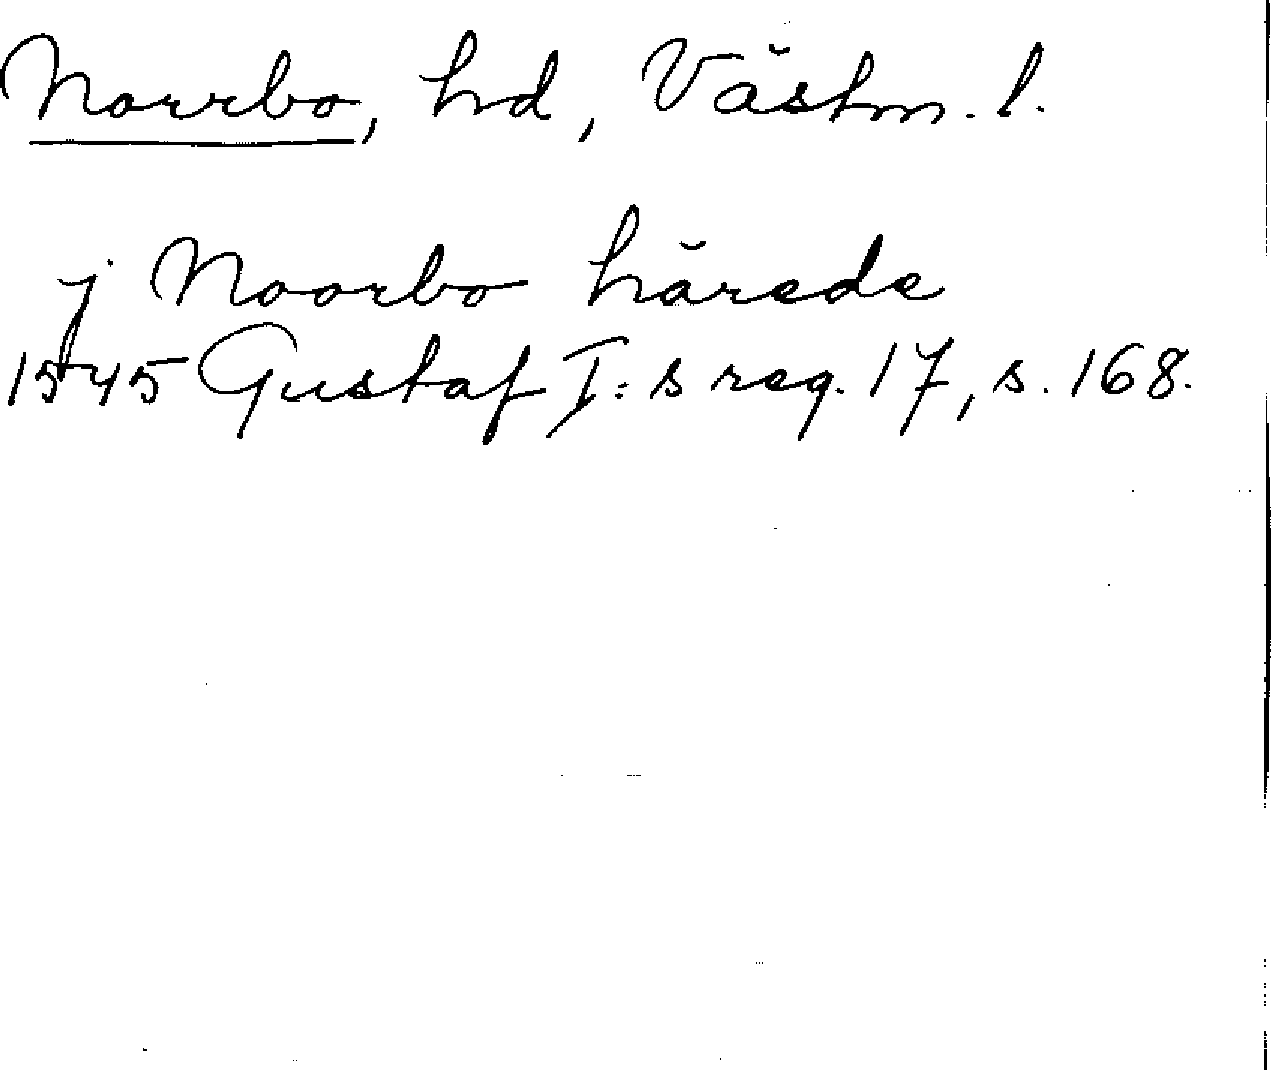 Norrbo, hd, Västm. l.
j Noorbo härede
1545 Gustaf I:s reg. 17, s. 168.